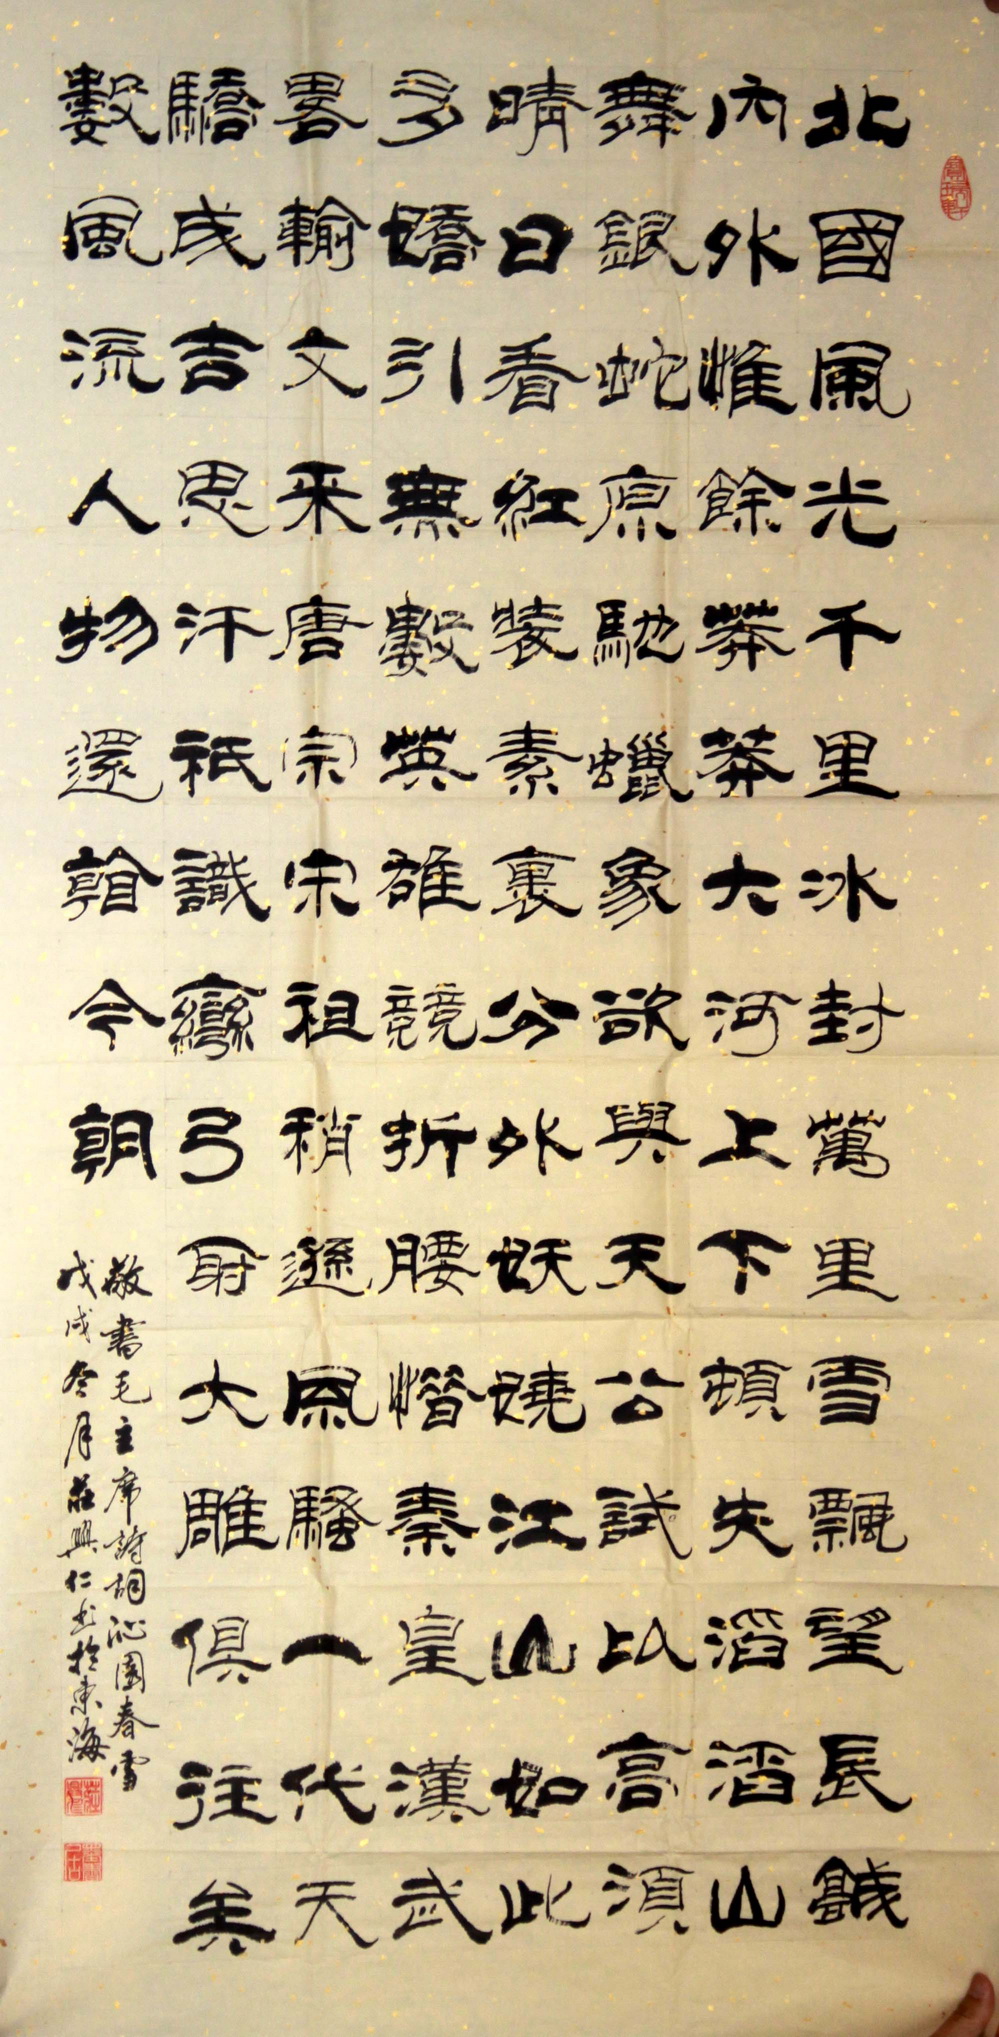 北國風光千里冰封萬里雪飄望長城
內外惟餘莽莽大河上下頓失滔滔山
舞銀蛇原馳蠟象欲與天公試以高須
晴日看紅裝素裹分外妖嬈江山如此
多嬌引無數英雄競折腰惜秦皇漢武
畧輸文采唐宗宋祖稍遜風騷一代天
驕成吉思汗祇識彎弓射大雕俱往矣
數風流人物還看今朝
敬書毛主席詩詞沁園春雪
戊戌冬月莊興仁書於東海